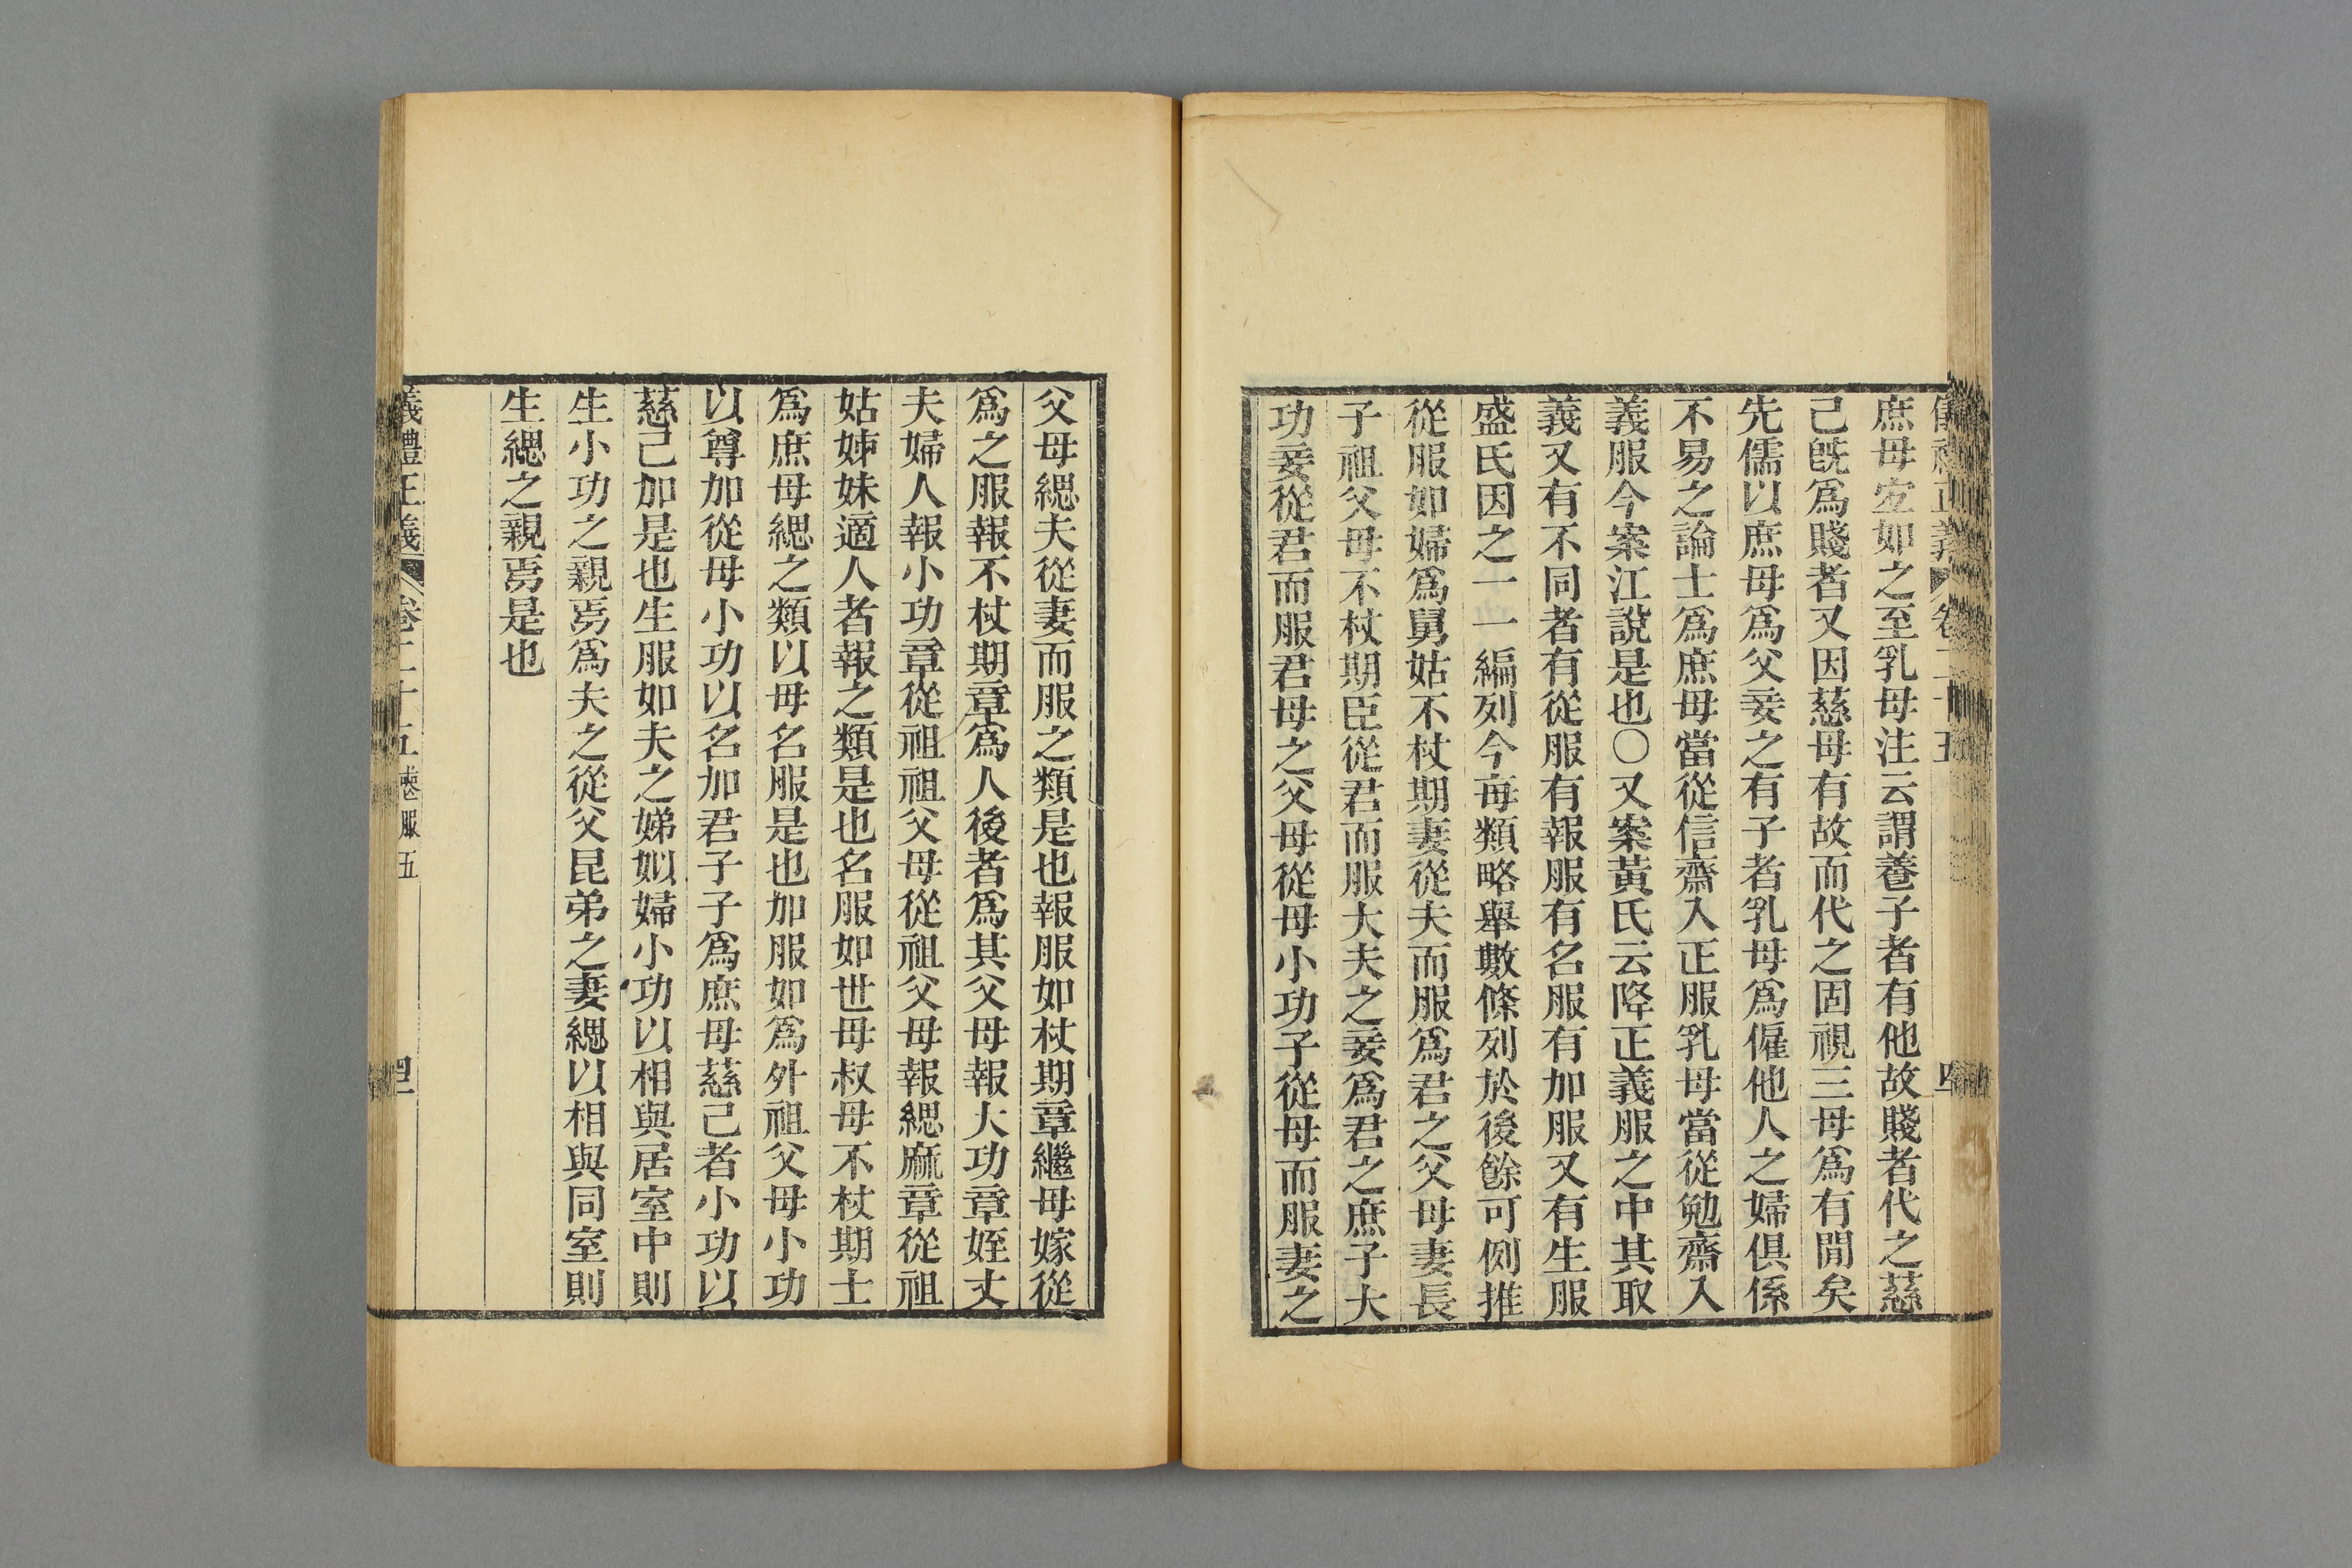 庶母宐如之至乳母注云謂養子者有他故賤者代之慈
己旣爲賤者又因慈母有故而代之固視三母爲有閒矣
先儒以庶母爲父妾之有子者乳母爲僱他人之婦俱係
不易之論士爲庶母當從信齋入正服乳母當從勉齋入
義服今案江說是也〇又案黃氏云降正義服之中其取
義又有不同者有從服有報服有名服有加服又有生服
盛氏因之一一編列今每類略舉數條列於後餘可例推
從服如婦爲舅姑不杖期妻從夫而服爲君之父母妻長
子祖父母不杖期臣從君而服大夫之妾爲君之庶子大
功妾從君而服君母之父母從母小功子從母而服妻之
父母緦夫從妻而服之類是也報服如杖期章繼母嫁從
爲之服報不杖期章爲人後者爲其父母報大功章姪丈
夫婦人報小功章從祖祖父母從祖父母報緦麻章從祖
姑姊妹適人者報之類是也名服如世母叔母不杖期士
爲庶母緦之類以母名服是也加服如爲外祖父母小功
以尊加從母小功以名加君子子爲庶母慈己者小功以
慈己加是也生服如夫之娣姒婦小功以相與居室中則
生小功之親焉爲夫之從父昆弟之妻緦以相與同室則
生緦之親焉是也
儀禮正義 卷二十五 喪服五